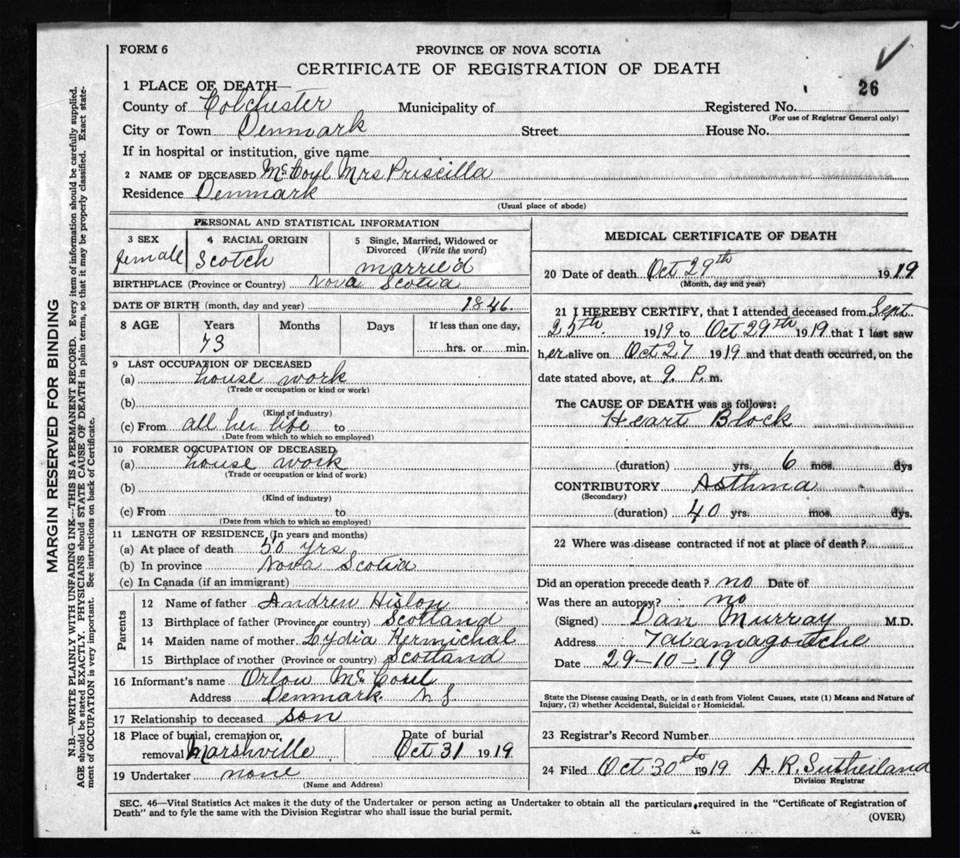 FORM 6
PROVINCE OF NOVA SCOTIA
CERTIFICATE OF REGISTRATION OF DEATH
26
1 PLACE OF DEATH—
County of Colchester Municipality of Registered No.
(For use of Registrar General only)
City or Town Denmark Street House No.
If in hospital or institution, give name
2 NAME OF DECEASED McCoul Mrs Priscilla
Residence Denmark
(Usual place of abode)
PERSONAL AND STATISTICAL INFORMATION
3 SEX 4 RACIAL ORIGIN 5 Single, Married, Widowed or
Divorced (Write the word)
female Scotch married
BIRTHPLACE (Province or Country) Nova Scotia
DATE OF BIRTH (month, day and year) 1846.
8 AGE Years Months Days If less than one day,
73 hrs. or min.
9 LAST OCCUPATION OF DECEASED
(a) house work
(Trade or occupation or kind or work)
(b)
(Kind of industry)
(c) From all her life to
(Date from which to which so employed)
10 FORMER OCCUPATION OF DECEASED
(a) house work
(Trade or occupation or kind or work)
(b)
(Kind of industry)
(c) From to
(Date from which to which so employed)
11 LENGTH OF RESIDENCE (In years and months)
(a) At place of death 50 yrs
(b) In province Nova Scotia
(c) In Canada (if an immigrant)
Parents
12 Name of father Andrew Hislop
13 Birthplace of father (Province or country) Scotland
14 Maiden name of mother Lydia Kermichal
15 Birthplace of mother (Province or country) Scotland
16 Informant's name Orlou McCoul
Address Denmark N S
17 Relationship to deceased son
18 Place of burial, cremation or Date of burial
removal Marshville Oct 31 1919
19 Undertaker none
(Name and Address)
MEDICAL CERTIFICATE OF DEATH
20 Date of death Oct 29th 1919
(Month, day and year)
21 I HEREBY CERTIFY, that I attended deceased from Sept
25th 1919 to Oct 29th 1919 that I last saw
her alive on Oct 27 1919 and that death occurred, on the
date stated above, at 9 P. m.
The CAUSE OF DEATH was as follows:
Heart Block
(duration) yrs. 6 mos. dys
CONTRIBUTORY Asthma
(Secondary)
(duration) 40 yrs. mos. dys.
22 Where was disease contracted if not at place of death?
Did an operation precede death? no Date of
Was there an autopsy? no
(Signed) Dan Murray M.D.
Address Tatamagouche
Date 29-10-19
State the Disease causing Death, or in death from Violent Causes, state (1) Means and Nature of
Injury, (2) whether Accidental, Suicidal or Homicidal.
23 Registrar's Record Number
24 Filed Oct 30 1919 A. R. Sutherland
Division Registrar
SEC. 46—Vital Statistics Act makes it the duty of the Undertaker or person acting as Undertaker to obtain all the particulars required in the "Certificate of Registration of
Death" and to fyle the same with the Division Registrar who shall issue the burial permit.
(OVER)
MARGIN RESERVED FOR BINDING
N.B.—WRITE PLAINLY WITH UNFADING INK—THIS IS A PERMANENT RECORD. Every item of information should be carefully supplied.
AGE should be stated EXACTLY. PHYSICIANS should STATE CAUSE OF DEATH in plain terms, so that it may be properly classified. Exact state-
ment of OCCUPATION is very important. See instructions on back of Certificate.